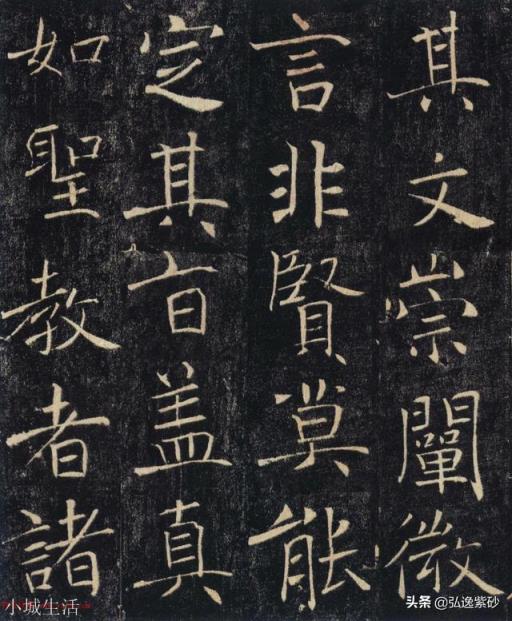 其文崇闡微
言非賢莫能
定其旨盖真
如聖教者諸
小城生活
头条 @弘逸紫砂